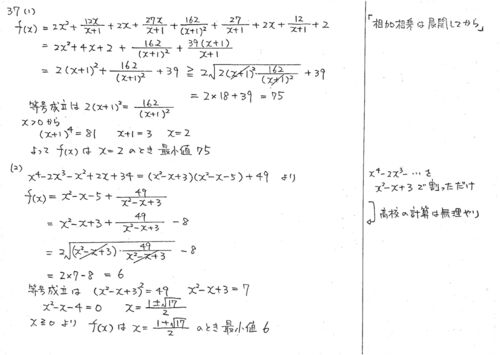 37 (1)
f(x) = 2x² + 12x/(x+1) + 2x + 27x/(x+1) + 162/(x+1)² + 27/(x+1) + 2x + 12/(x+1) + 2
= 2x² + 4x + 2 + 162/(x+1)² + 39(x+1)/(x+1)
= 2(x+1)² + 162/(x+1)² + 39 ≧ 2√(2(x+1)²·162/(x+1)²) + 39
= 2×18 + 39 = 75
等号成立は 2(x+1)² = 162/(x+1)²
x>0 から
(x+1)⁴ = 81 x+1 = 3 x = 2
よって f(x) は x = 2 のとき 最小値 75
(2)
x⁴-2x³-x²+2x+34 = (x²-x+3)(x²-x-5)+49 より
f(x) = x²-x-5 + 49/(x²-x+3)
= x²-x+3 + 49/(x²-x+3) - 8
= 2√((x²-x+3)·49/(x²-x+3)) - 8
= 2×7-8 = 6
等号成立は (x²-x+3)² = 49 x²-x+3 = 7
x²-x-4 = 0 x = (1±√17)/2
x≧0 より f(x) は x = (1+√17)/2 のとき 最小値 6
「相加相乗は展開してから」
x⁴-2x³-… を
x²-x+3 で割っただけ
高校の計算は無理やり